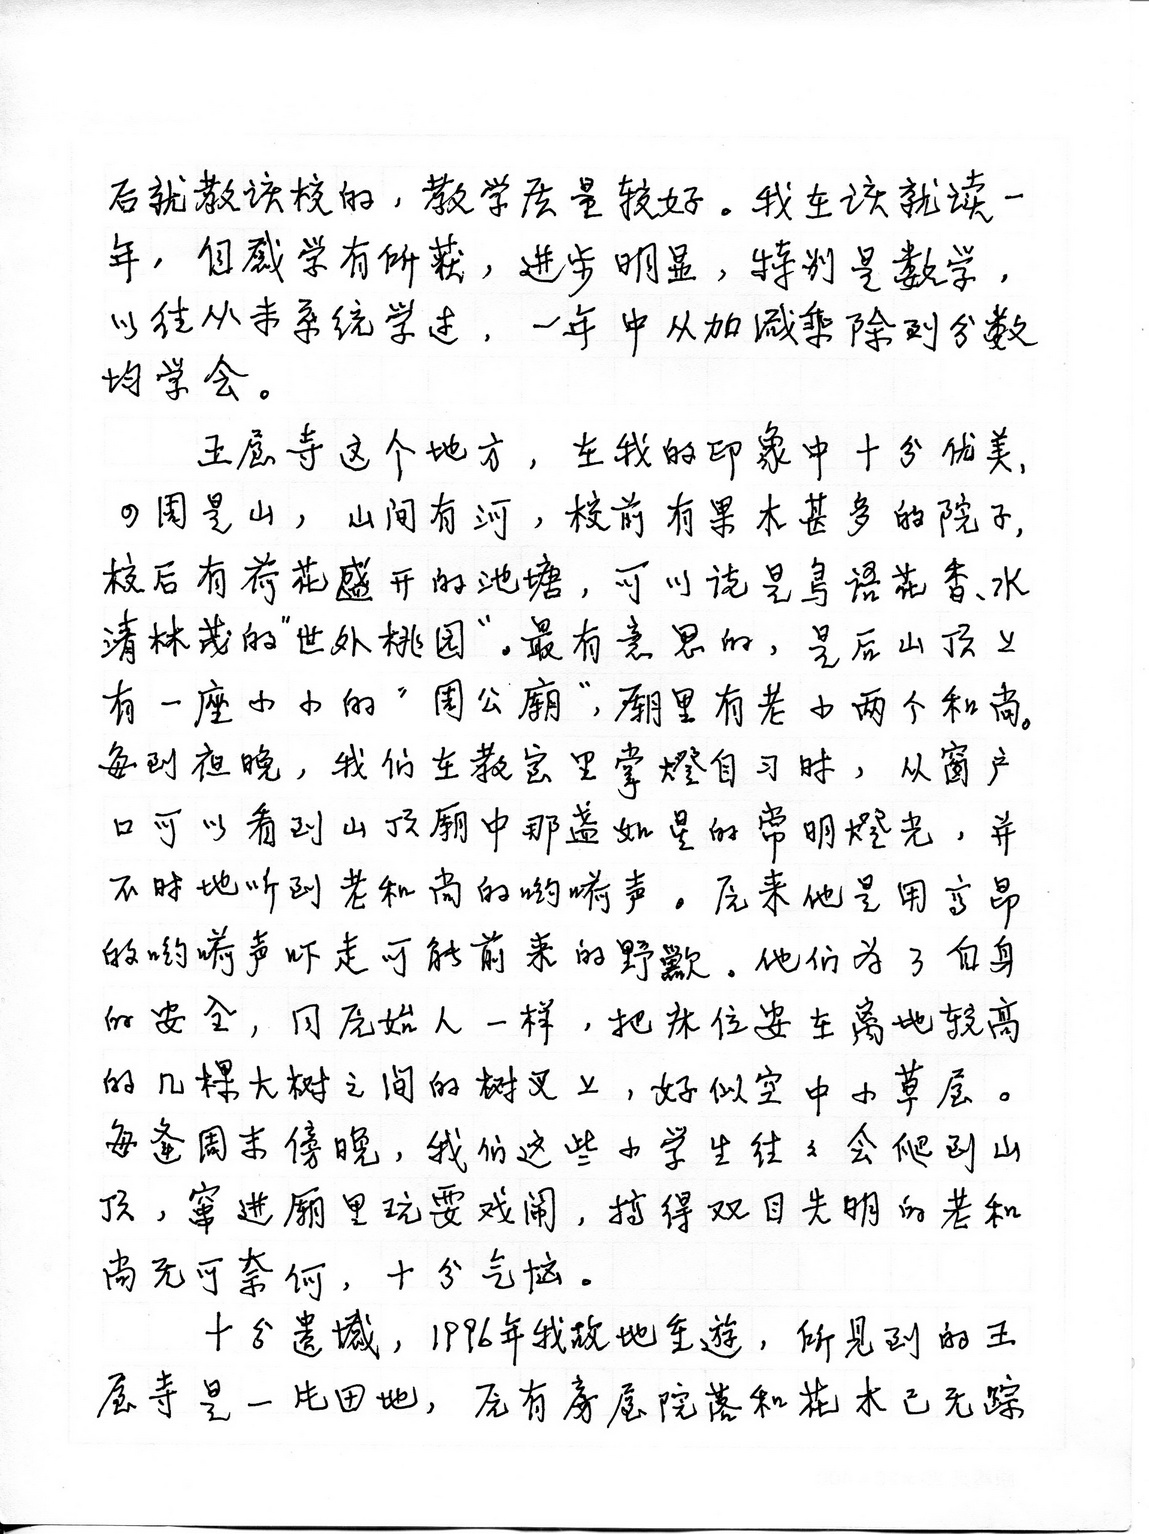 后就教该校的，教学质量较好。我在该就读一
年，但感学有所获，进步明显，特别是数学，
以往从未系统学过，一年中从加减乘除到分数
均学会。
王屋寺这个地方，在我的印象中十分优美，
四周是山，山间有河，校前有果木甚多的院子，
校后有荷花盛开的池塘，可以说是鸟语花香、水
清林茂的"世外桃园"。最有意思的，是后山顶上
有一座小小的"周公廟"，廟里有老小两个和尚。
每到夜晚，我们在教室里掌燈自习时，从窗户
口可以看到山顶廟中那盏如星的常明燈光，并
不时地听到老和尚的哟嗬声。原来他是用高昂
的哟嗬声吓走可能前来的野獸。他们为了自身
的安全，同原始人一样，把床位安在离地较高
的几棵大树之间的树叉上，好似空中小草屋。
每逢周末傍晚，我们这些小学生往々会爬到山
顶，窜进廟里玩耍戏闹，搞得双目失明的老和
尚无可奈何，十分气恼。
十分遗憾，1996年我故地重遊，所见到的王
屋寺是一片田地，原有房屋院落和花木已无踪